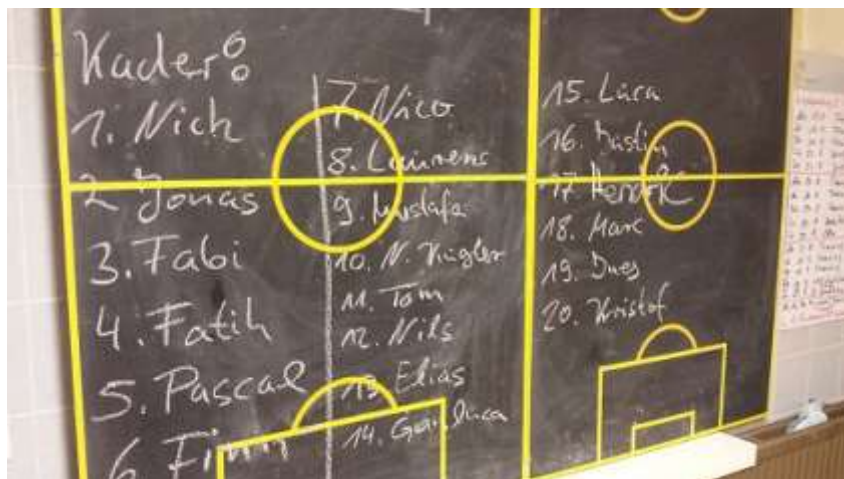 Kader:
1. Nick
2 Jonas
3. Fabi
4. Fatih
5. Pascal
6. Finn
7. Nico
8. Laurens
9. Mustafa
10. N. Kugler
11. Tom
12. Nils
13. Elias
14. Gianluca
15. Luca
16. Justin
17. Hendrik
18. Marc
19. Ines
20. Kristof